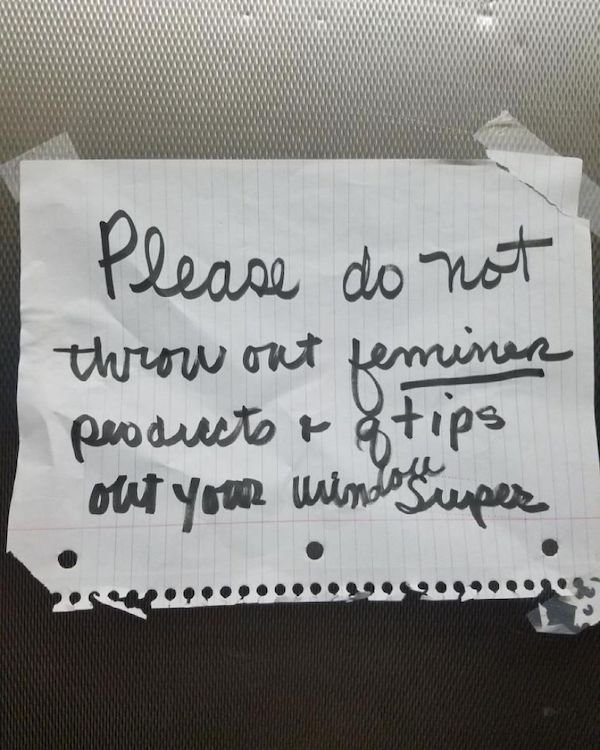 Please do not
throw out feminen
products & q tips
out your window
Super